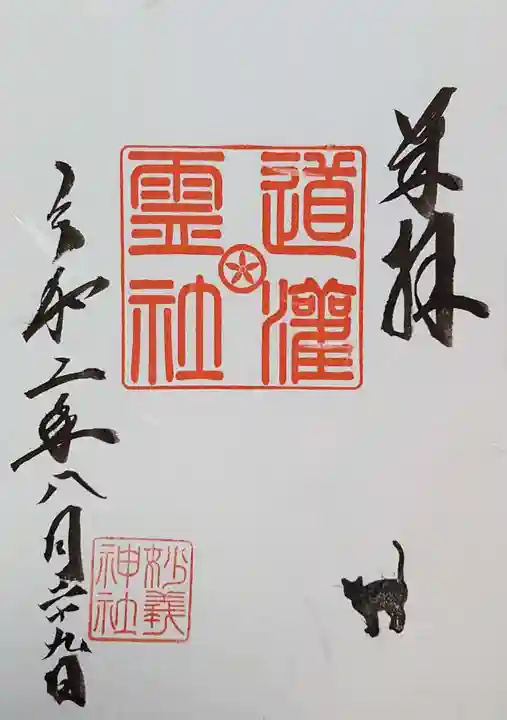 奉拝
道灌
霊社
妙義
神社
令和二年八月二十九日